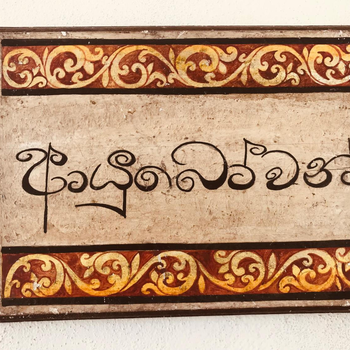 ආයුබෝවන්